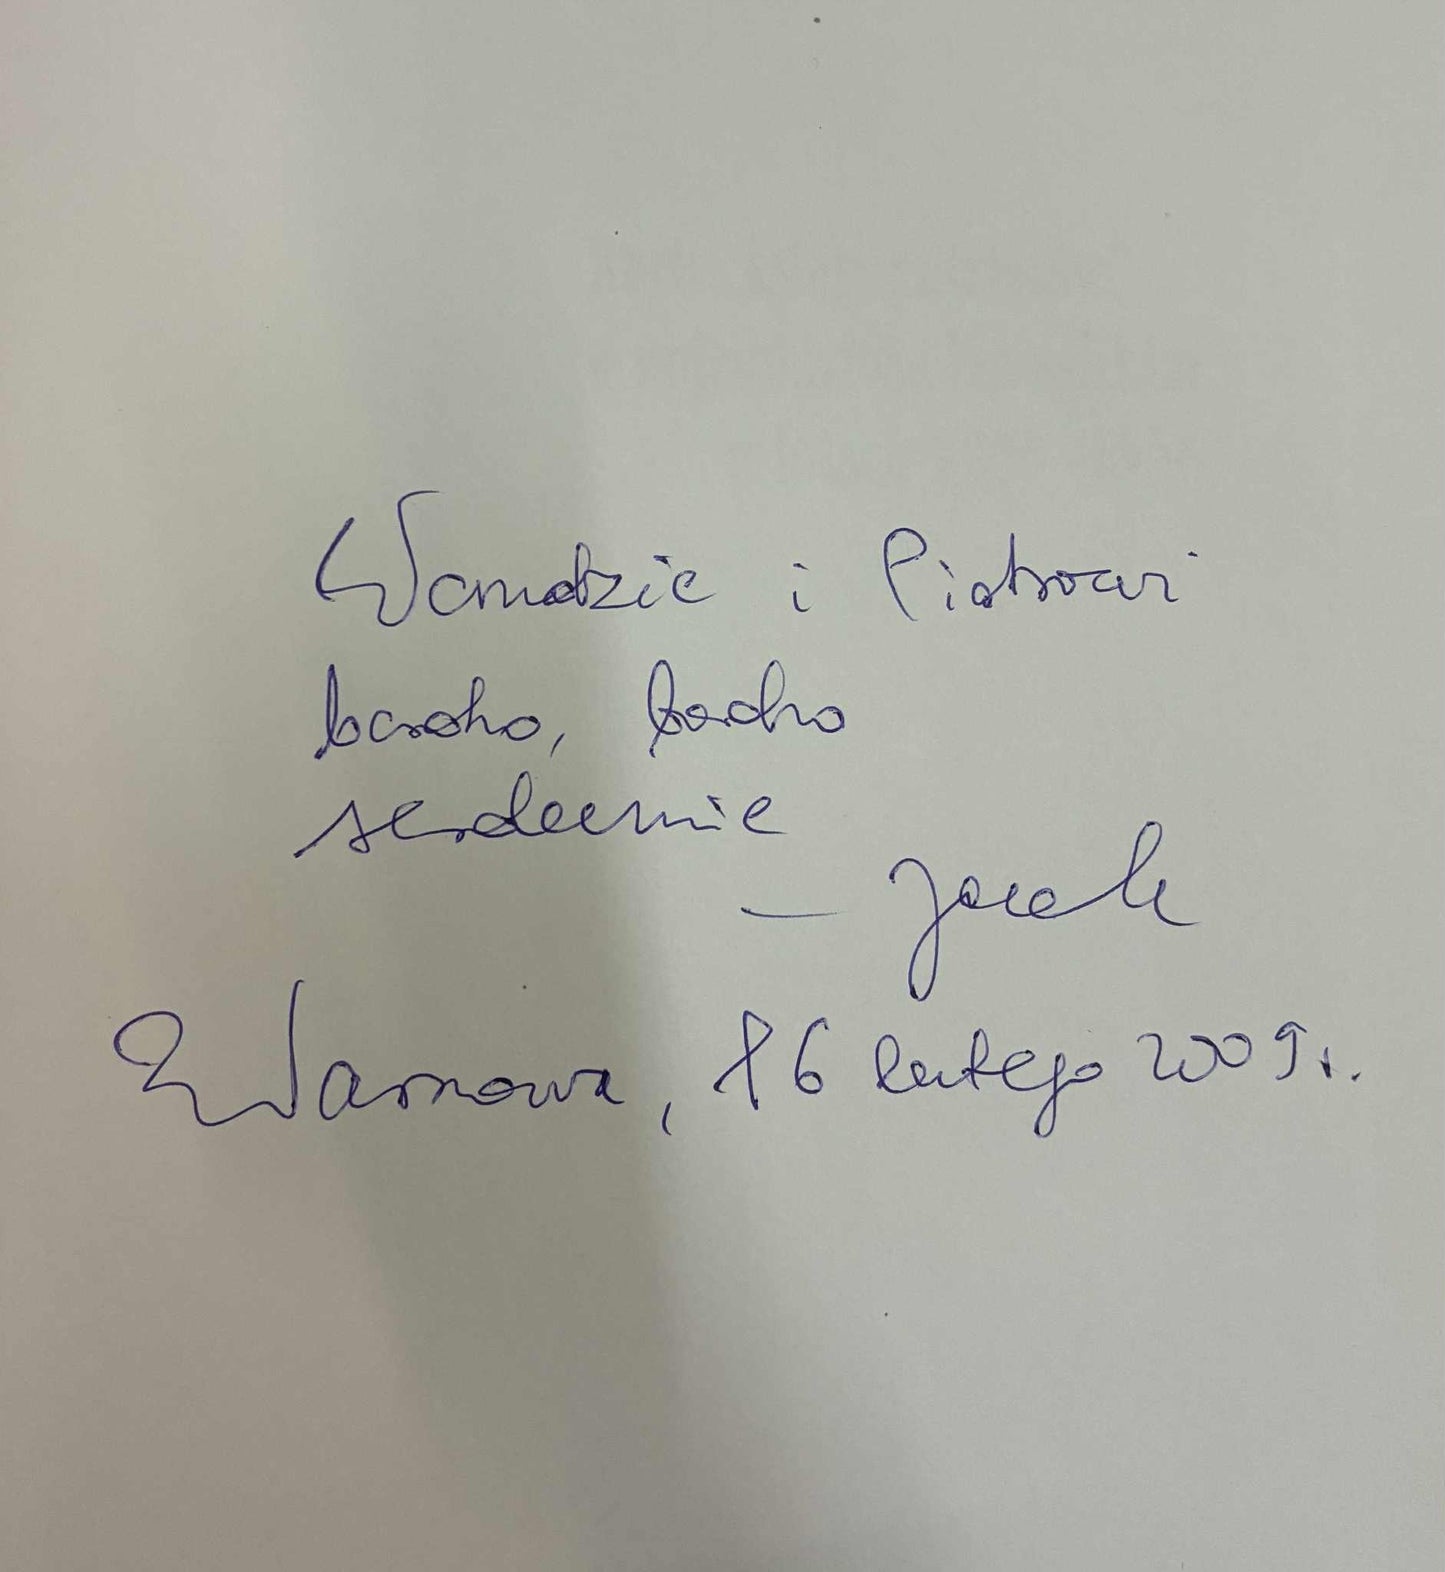 Wandzie i Piotrowi
bardzo, bardzo
serdecznie
— Jacek
Warszawa, 16 lutego 2009 r.